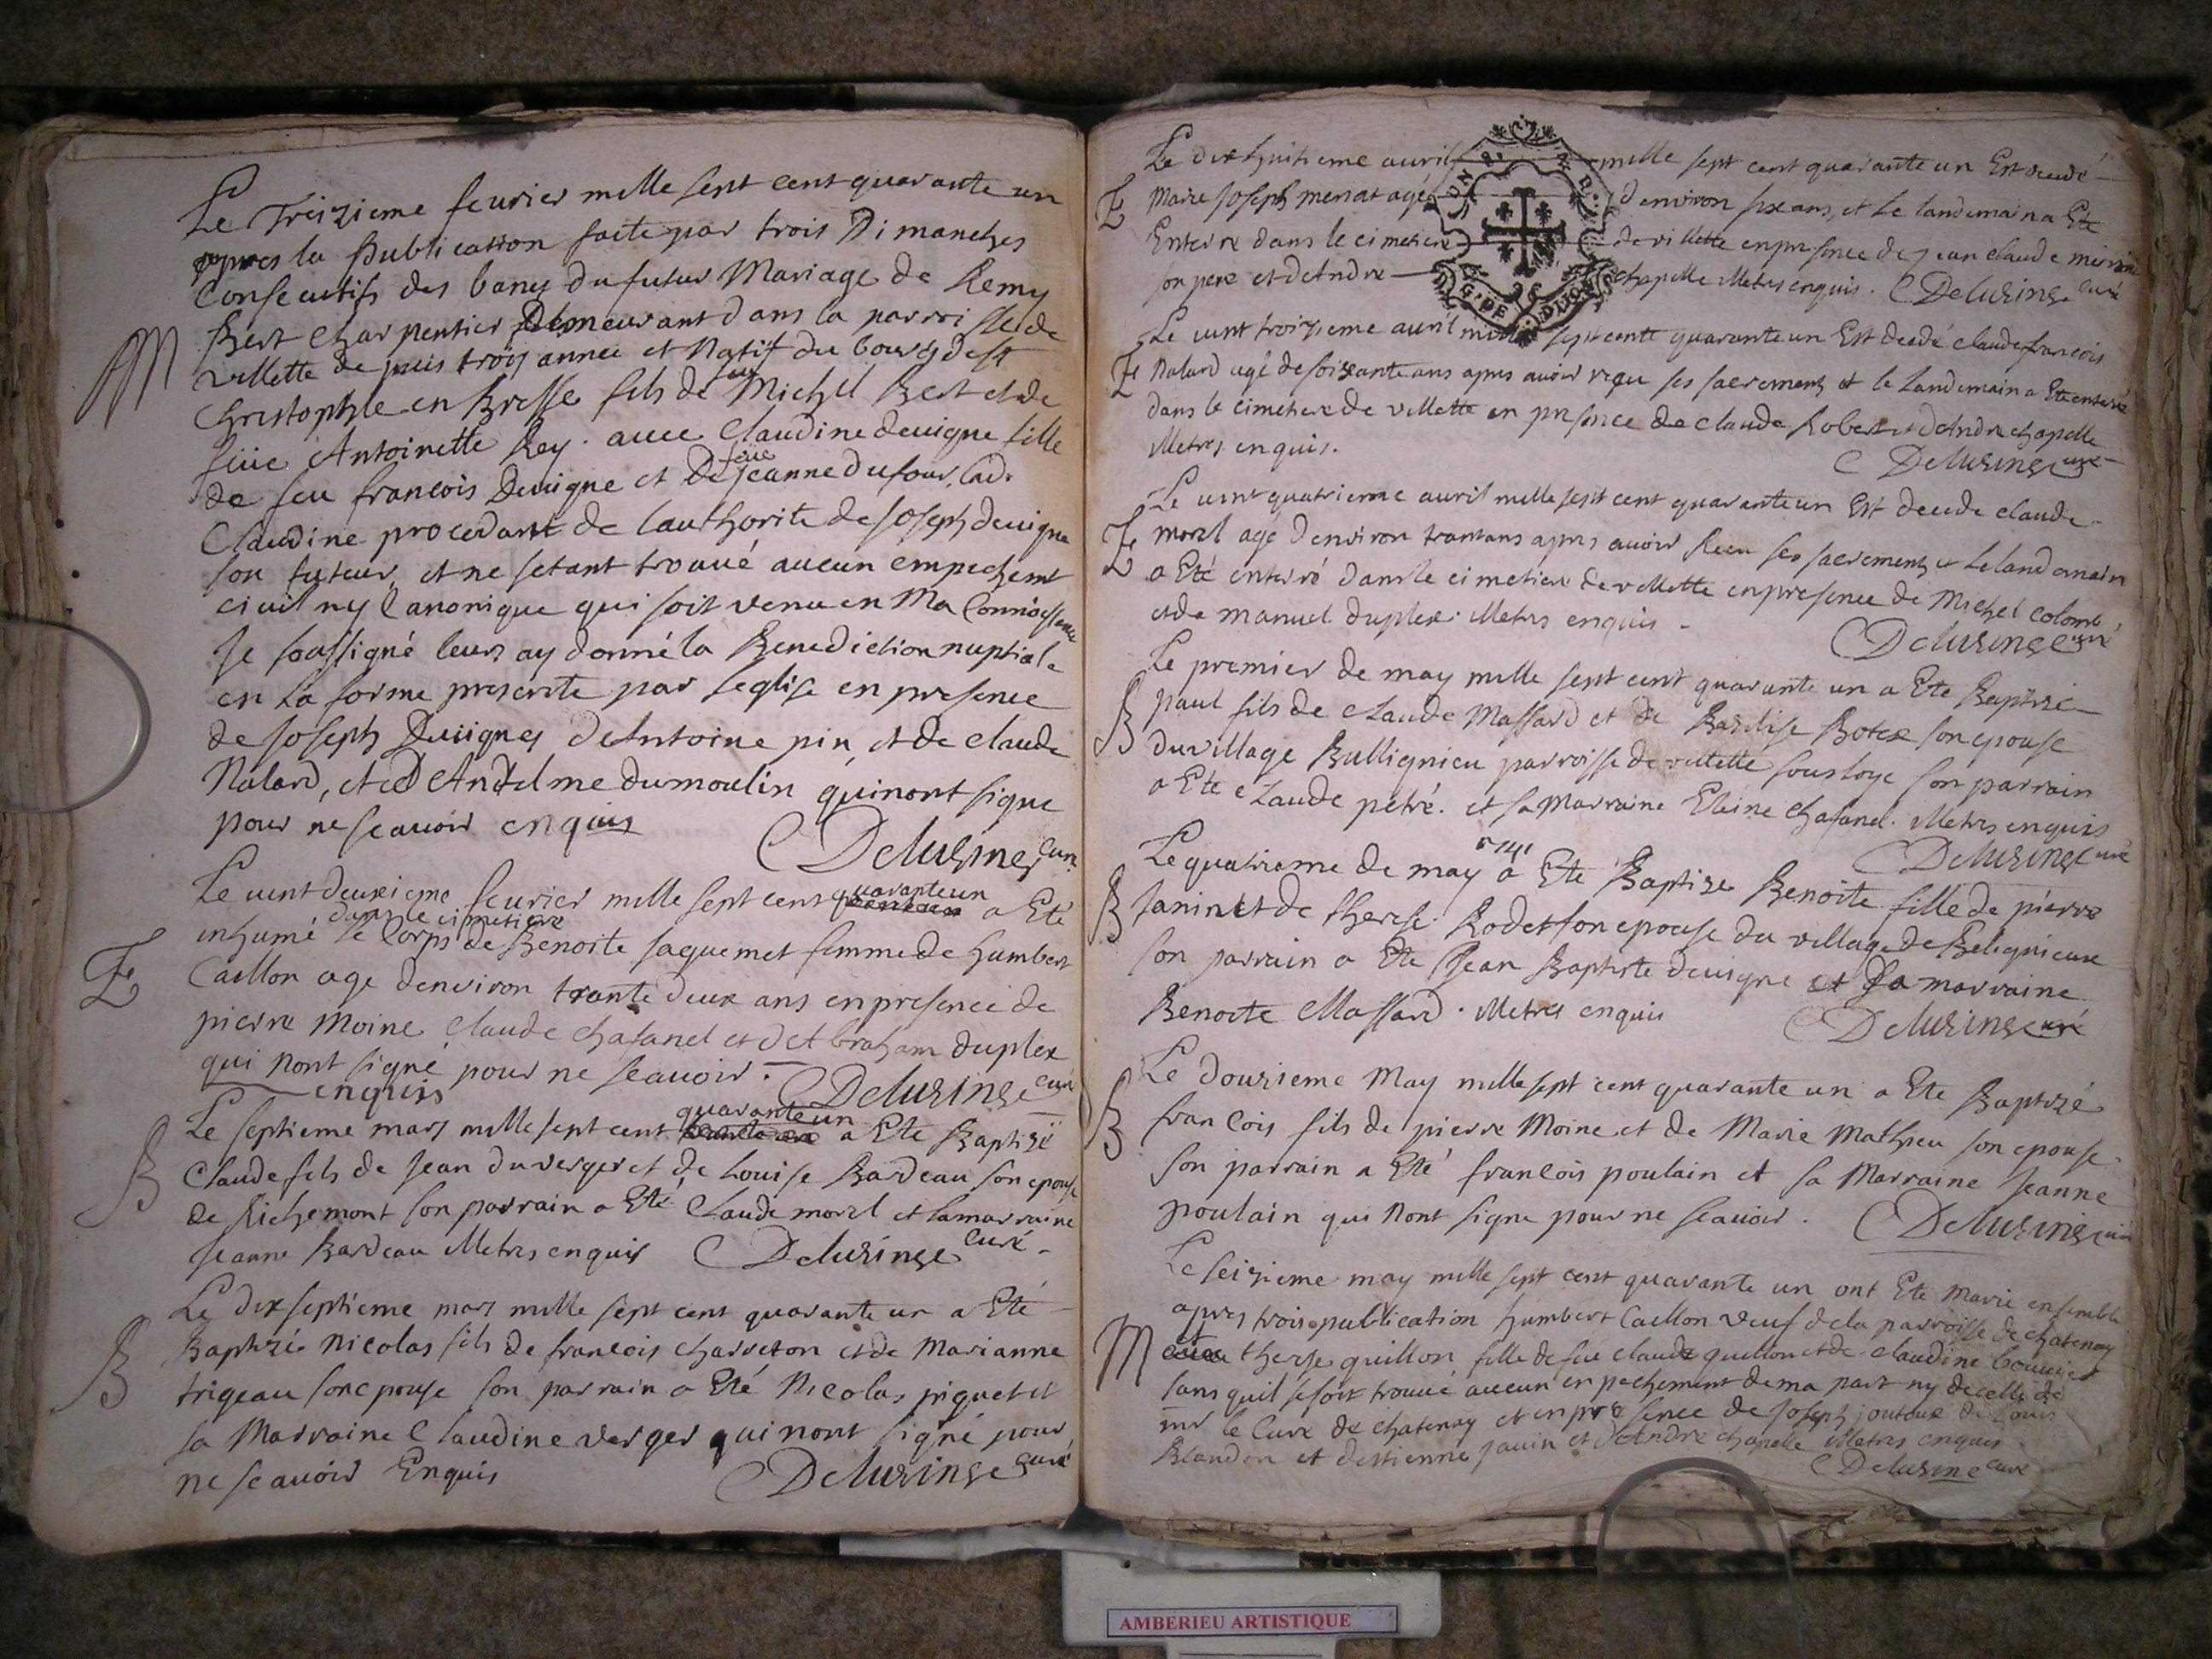 Le Treizieme feurier mille sept cent quarante un
apres la Publication faite par trois Dimanches
Consecutifs des bancs du futur Mariage de Remy
M
Bert Charpentier Demeurant dans la parroisse de
villette depuis trois année et Natif du bourg de st
Christophle en Bresse fils de feu Michel Bert et de
feüe Antoinette Rey. auec Claudine deuigne fille
de feu francois Deuigne et De feüe jeanne dufour, lad.
Claudine procedant de lauthorité de joseph deuigne
son tuteur, et ne setant trouué aucun empechemt
ciuil ny Canonique qui soit venu en Ma Connoissance
Je soussigné leurs ay donné la Benediction nuptiale
en La forme prescrite par leglise en presence
de joseph Deuignes dAntoine pin et de claude
Nalard, et dAntelme dumoulin qui nont signe
pour ne scauoir enquis
Delusinge curé
Le uint deuxieme feurier mille sept cent quarante un a Eté
inhumé dans le cimetiere le Corps de Benoite jaquemet femme de humbert
E
Caillon age denviron trante deux ans en presence de
pierre Moine Claude chafanel et dAbraham duplex
qui nont signé pour ne scauoir.
enquis
Delusinge curé
Le septieme mars mille sept cent quarante un a Eté Baptizé
B
Claude fils de jean duverger et de Louise Bardeau son epouse
de Richemont son parrain a Eté Claude morel et sa marraine
jeanne Bardeau illetrés enquis Delusinge curé
Le dixseptieme mars mille sept cent quarante un a Eté
B
Baptizé Nicolas fils de francois charreton et de Marianne
trigeau son epouse son parrain a Eté Nicolas piquet et
sa Marraine Claudine verger qui nont signé pour
ne scauoir Enquis
Delusinge curé
Le dixhuitieme auril mille sept cent quarante un Est decedé
E
Marie joseph agé d'environ six ans, et le landemain a Eté
Enterre dans le cimetiere de villette en presence de jean claude
son pere et dAndre chapelle illetres enquis. Delusinge curé
Le uint troizieme auril mille sept cent quarante un Est decedé claude francois
E
Nalard agé de soixante ans apres auoir reçu ses sacrements et le landemain a Eté enterré
dans le cimetiere de villette en presence de claude Robert et dAndre chapelle
illetres enquis.
Delusinge curé
Le uint quatrieme auril mille sept cent quarante un Est decede claude
E
morel agé denviron trantans apres auoir Recu ses sacrements et le landemain
a Eté enterré dans le cimetiere de villette en presence de Michel colomb
et de manuel duplex. illetres enquis
Delusinge curé
Le premier de may mille sept cent quarante un a Eté Baptizé
B
paul fils de claude Massard et de Basilise Botex son epouse
du village Bullignieu parroisse de villette sousloye son parrain
a Eté claude petré. et sa marraine Elaine chafanel. illetres enquis
Delusinge curé
Le quatrieme de may 1741 a Eté Baptize Benoite fille de pierre
B
janin et de therese Rodet son epouse du village de Belignieux
son parrain a Eté jean Baptiste deuigne et sa marraine
Benoite Massard. illetres enquis
Delusinge curé
Le douzieme May mille sept cent quarante un a Eté Baptizé
B
francois fils de pierre Moine et de Marie Mathieu son epouse
son parrain a Eté francois poulain et sa Marraine jeanne
poulain qui nont signe pour ne scauoir.
Delusinge curé
Le seizieme may mille sept cent quarante un ont Eté Marie ensemble
apres trois publication humbert Caillon veuf de la parroisse de chatenay
M
et therese guillon fille de feu claude guillon et de claudine bouuier
sans quil se soit trouué aucun enpechement de ma part ny de celle de
mr le Curé de chatenay et en presence de joseph joutoux de Louis
Blandon et destienne jauin et dAndre chapelle illetres enquis
Delusinge curé
G. DE DIJON
AMBERIEU ARTISTIQUE